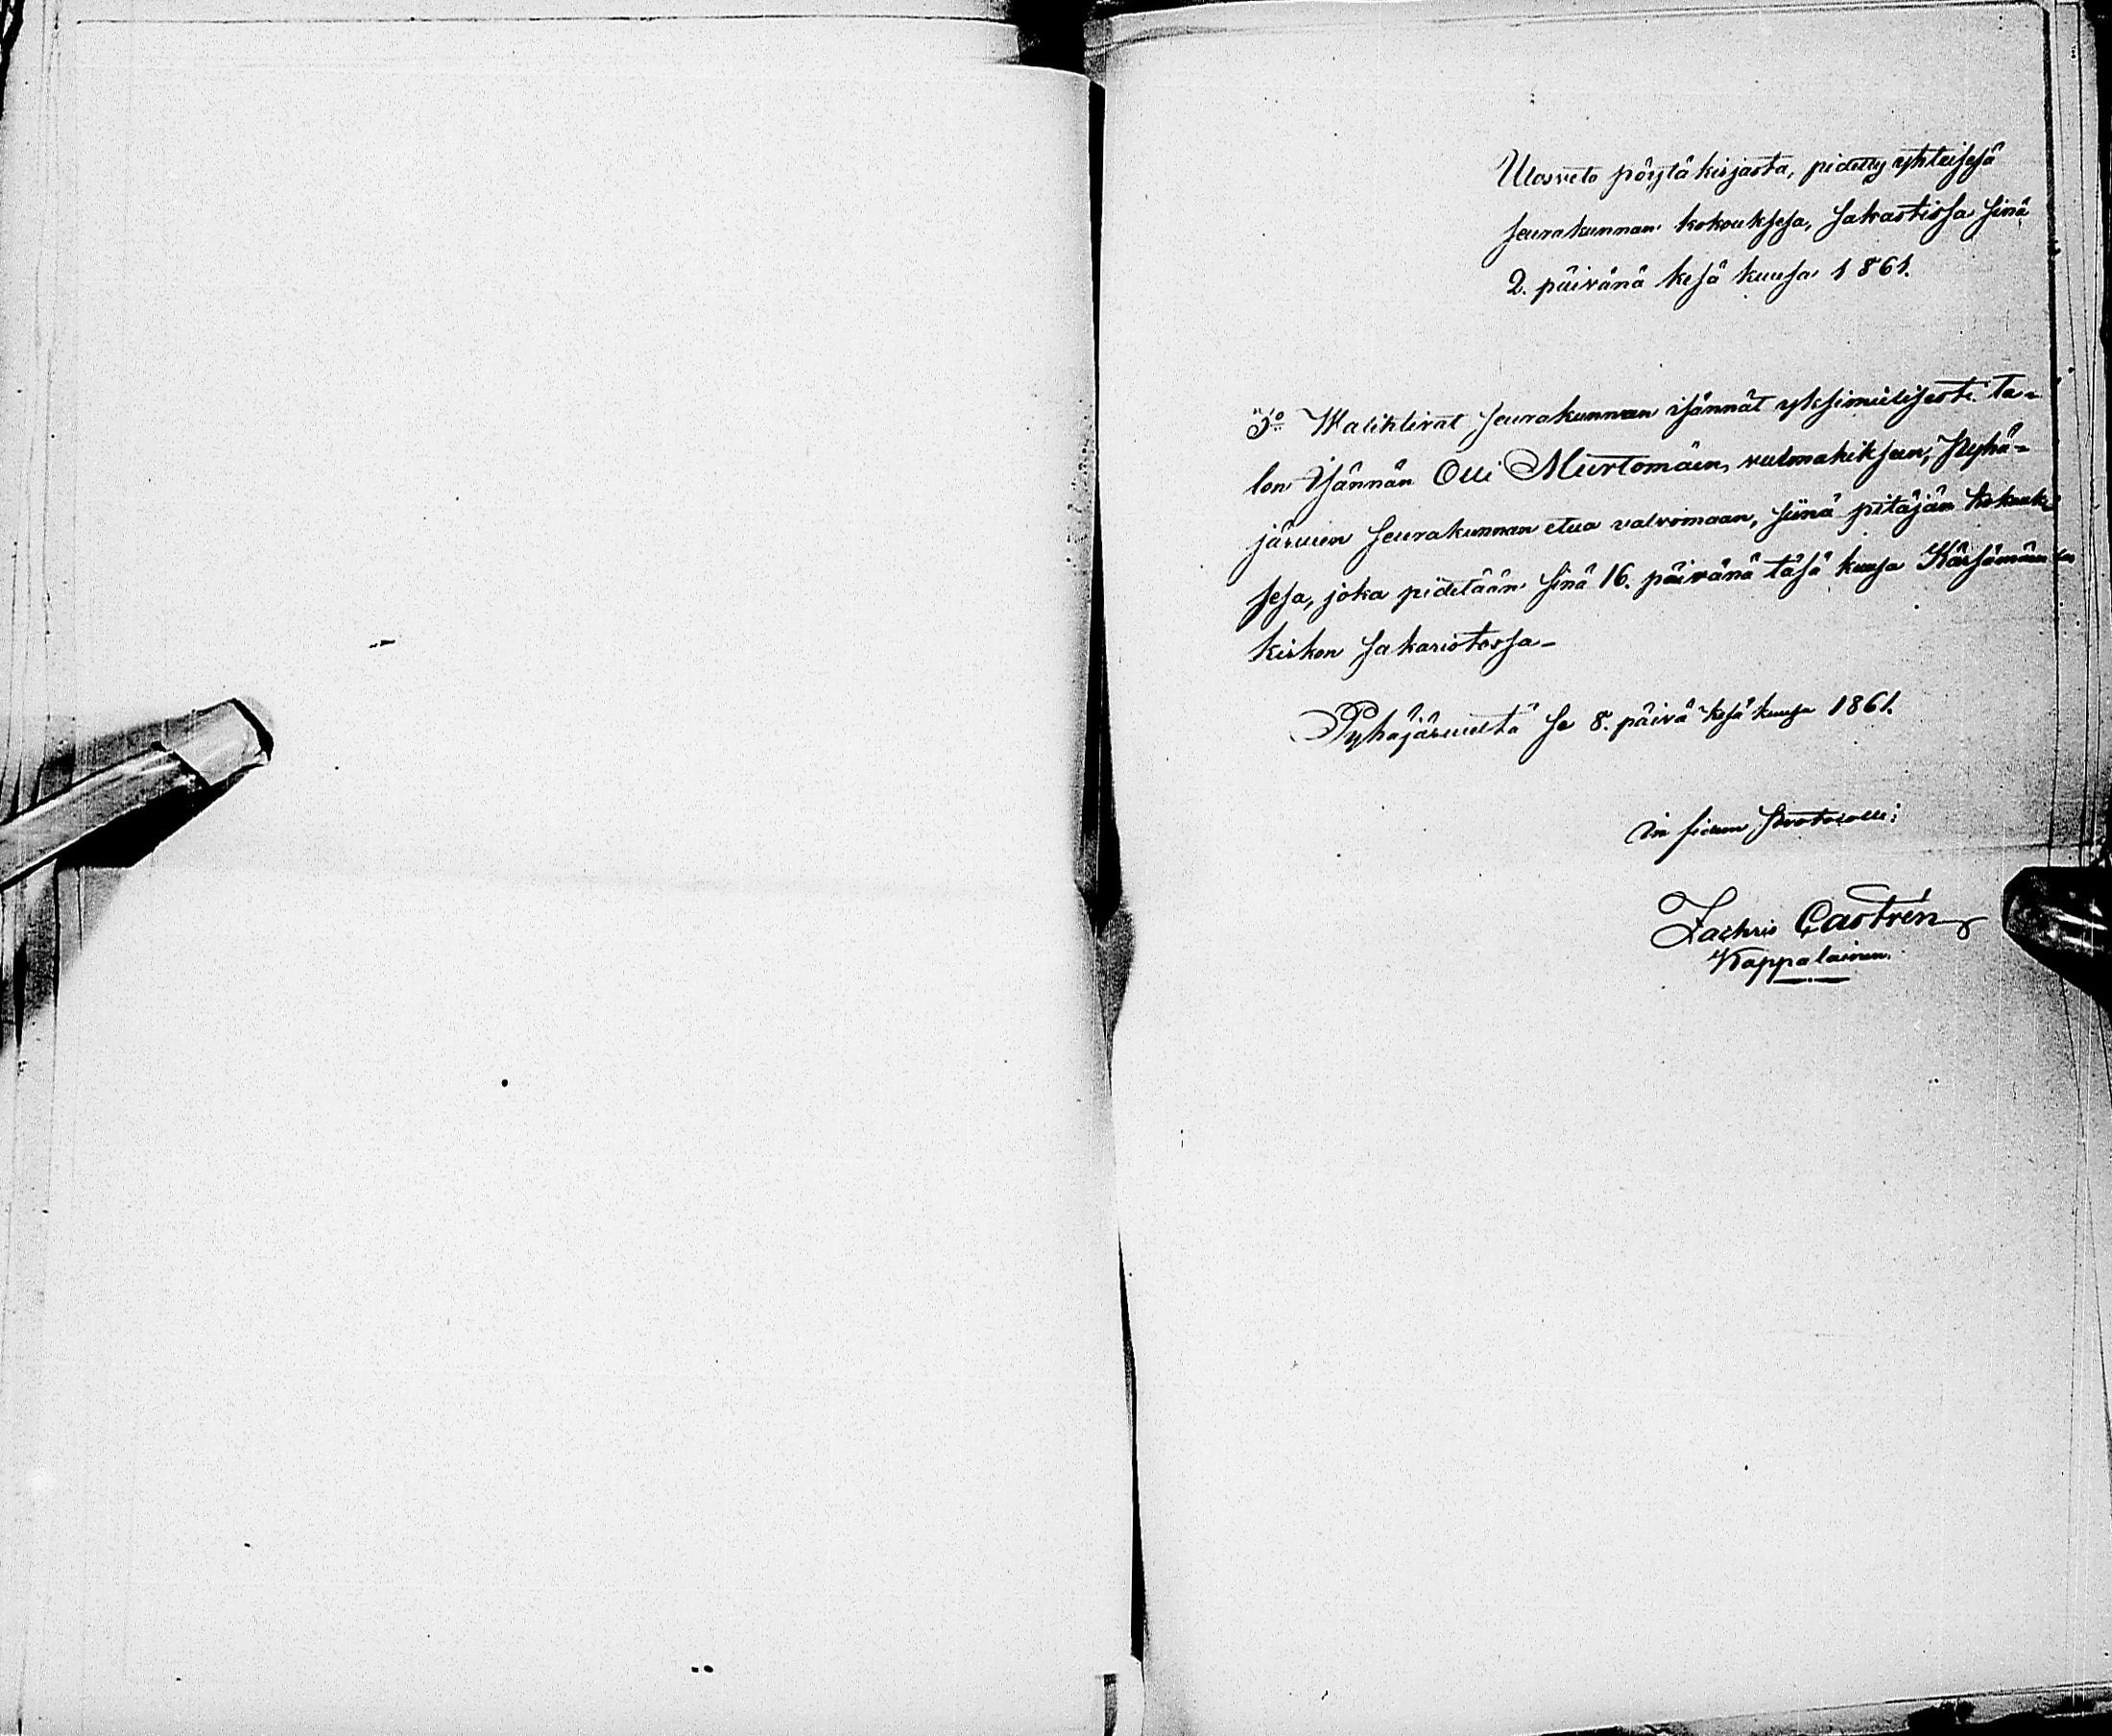 Ulosveto pöytäkirjasta, pidetty yhteisesä
seurakunnan kokouksesa, sakastissa sinä
2. päivänä kesä kuusa 1861.
Walihtivat seurakunnan isännät yksimielisesti ta-
lon Isännän Olli Murtomäen, valmahikseen, Pyhä-
järvien seurakunnan etua valvomaan, siinä pitäjän kokouk-
sesa, joka pidetään sinä 16. päivänä täsä kuusa Kärsämäen
kirkon sakaristossa-
Pyhäjärveltä se 8. päivä kesä kuusa 1861.
In fidem Protocolli:
Zachris Castrén
Kappalainen.